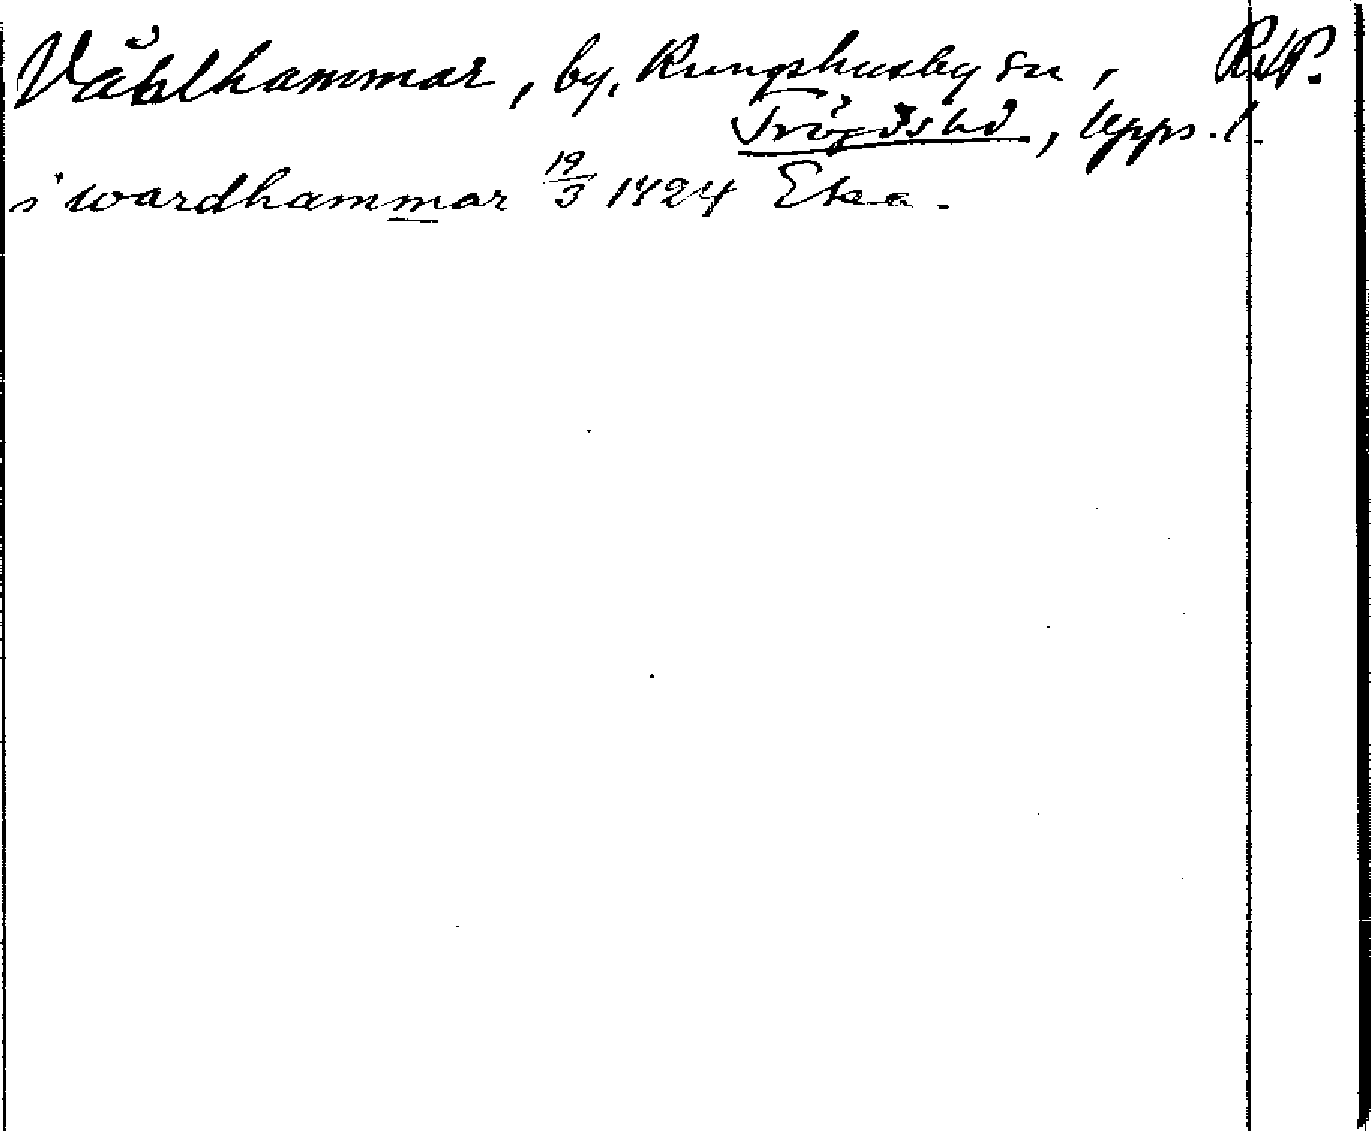 Våhlhammar, by, Kungshusby sn, RAP.
Trögds hd, Upps. l.
i wardhammar 19/3 1424 Eka.